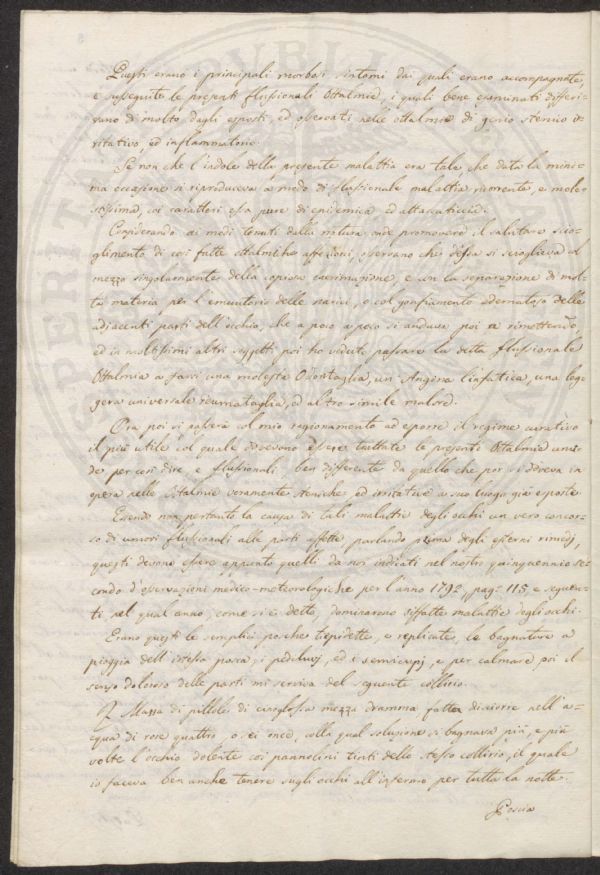 Questi erano i principali morbosi sintomi dai quali erano accompagnate,
e susseguite le presenti flussionali Ottalmie, i quali bene esaminati differi=
vano di molto dagli esposti, ed osservati nelle ottalmie di genio stenico ir=
ritativo, ed inflammatorio.
Se non che l'indole della presente malattia era tale che data la mini=
ma occasione si riproduceva a modo di flussionale malattia ricorrente, e mole=
stissima, coi caratteri essa pure di epidemica ed attaccaticcia.
Considerando ai modi tenuti dalla natura onde promovere il salutare scio=
glimento di così fatte ottalmiche affezioni, osservano che desso si scioglieva col
mezzo singolarmente della copiosa lacrimazione e con la separazione di mol=
ta materia per l'emuntorio delle narici, o col gonfiamento edematoso delle
adjacenti parti dell'occhio, che a poco a poco si andava poi rimettendo,
ed in moltissimi altri soggetti poi ho veduto passare la detta flussionale
Ottalmia a farsi una molesta Odontaglia, un Angina linfatica, una leg=
gera universale reumataglia, ed altro simile malore.
Ora poi si passerà col mio ragionamento ad esporre il regime curativo
il più utile col quale dovevono essere trattate le presenti Ottalmie umi=
de per così dire, e flussionali ben differente da quello che por si doveva in
opera nelle Ottalmie veramente steniche ed irritative a suo luogo già esposte.
Essendo non pertanto la causa di tali malattie degli occhi un vero concor=
so di umori flussionali alle parti affette, parlando prima degli esterni rimedj,
questi devono essere appunto quelli da noi indicati nel nostro quinquennio se=
condo d'osservazioni medico-meteorologiche per l'anno 1792, pag: 115, e seguen=
ti, nel qual anno, come si è detto, dominarono siffatte malattie degli occhi.
Erano questi le semplici posche tiepidette, e replicate, le bagnature a
pioggia dell'istessa posca, i pediluvj, ed i semicupj, e per calmare poi il
senso doloroso delle parti mi serviva del seguente collirio.
℞ Massa di pillole di cinoglossa mezza dramma fatta disciorre nell'a=
cqua di rose quattro, o sei once, colla qual soluzione si bagnava più, e più
volte l'occhio dolente coi pannolini tinti dello stesso collirio, il quale
io faceva ben anche tenere sugli occhi all'infermo per tutta la notte.
Poscia